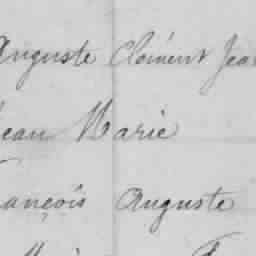 Auguste Clément Jean
Jean Marie
François Auguste